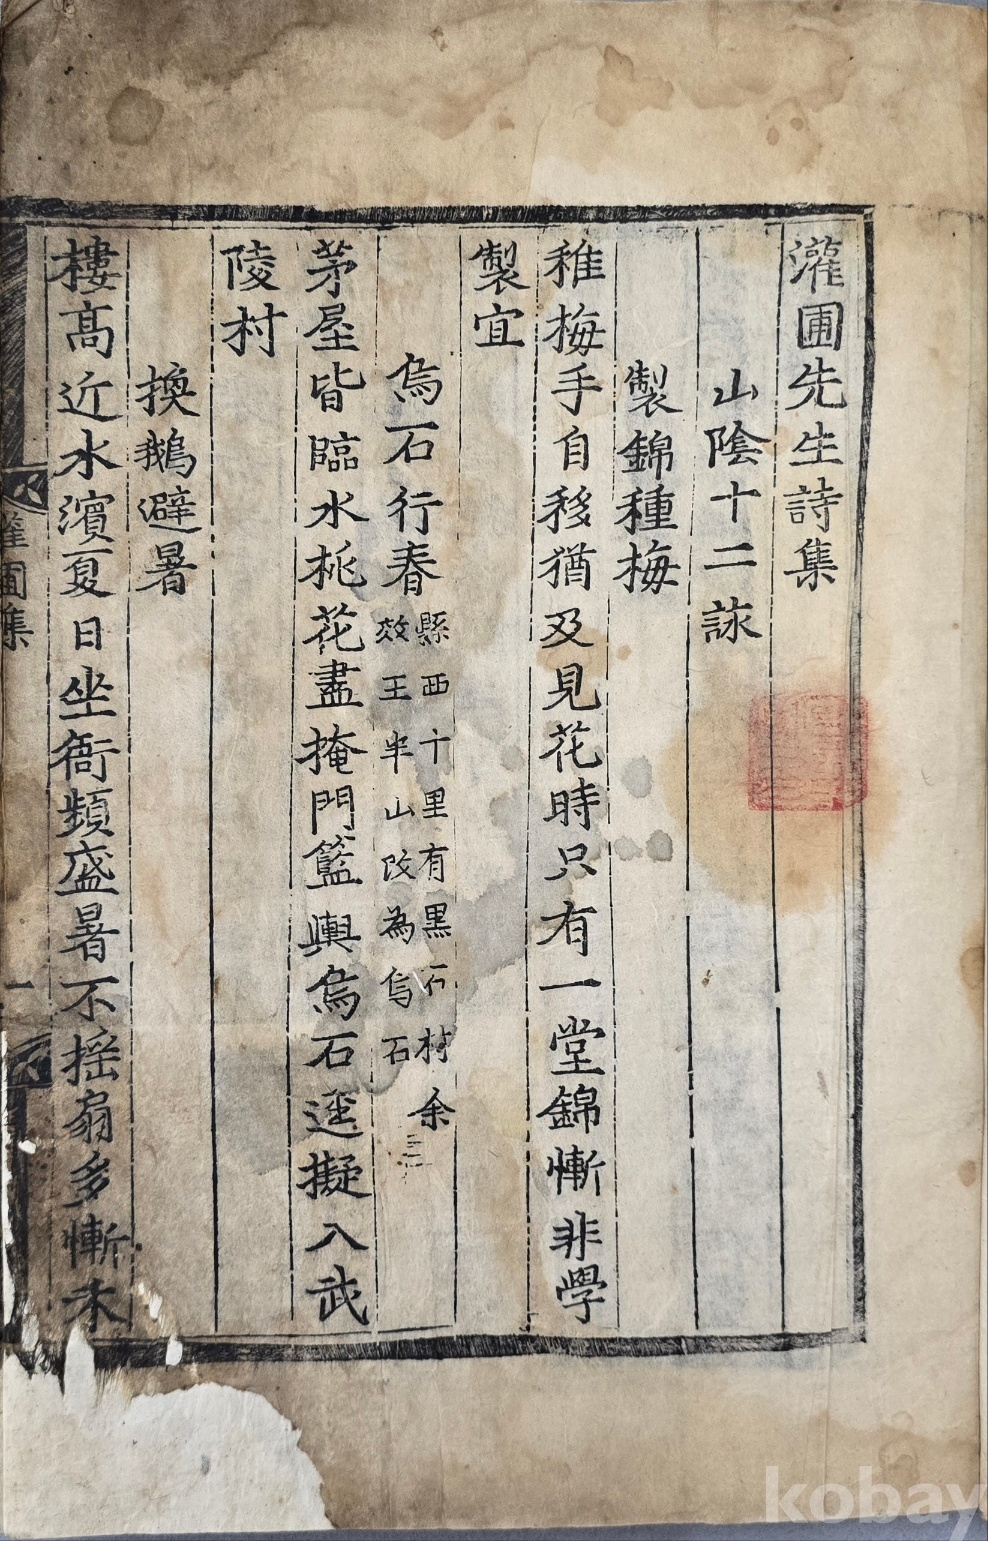 灌圃先生詩集
山陰十二詠
製錦種梅
稚梅手自移猶及見花時只有一堂錦慚非學
製宜
烏石行春
縣西十里有黑石村余
效王半山改為烏石
茅屋皆臨水桃花盡掩門籃輿烏石逕擬入武
陵村
換鵝避暑
樓高近水濱夏日坐衙頻盛暑不搖扇多慚未
灌圃集
一
kobay